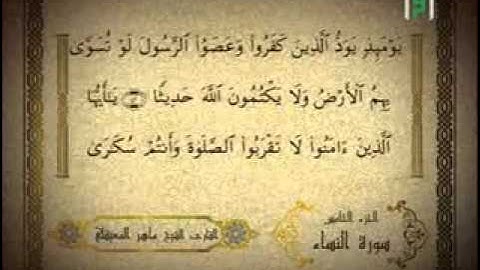 يَوْمَئِذٍ يَوَدُّ ٱلَّذِينَ كَفَرُوا۟ وَعَصَوُا۟ ٱلرَّسُولَ لَوْ تُسَوَّىٰ
بِهِمُ ٱلْأَرْضُ وَلَا يَكْتُمُونَ ٱللَّهَ حَدِيثًا ۝ يَـٰٓأَيُّهَا
ٱلَّذِينَ ءَامَنُوا۟ لَا تَقْرَبُوا۟ ٱلصَّلَوٰةَ وَأَنتُمْ سُكَـٰرَىٰ
الجزء الخامس
سورة النساء
القارئ الشيخ ماهر المعيقلي